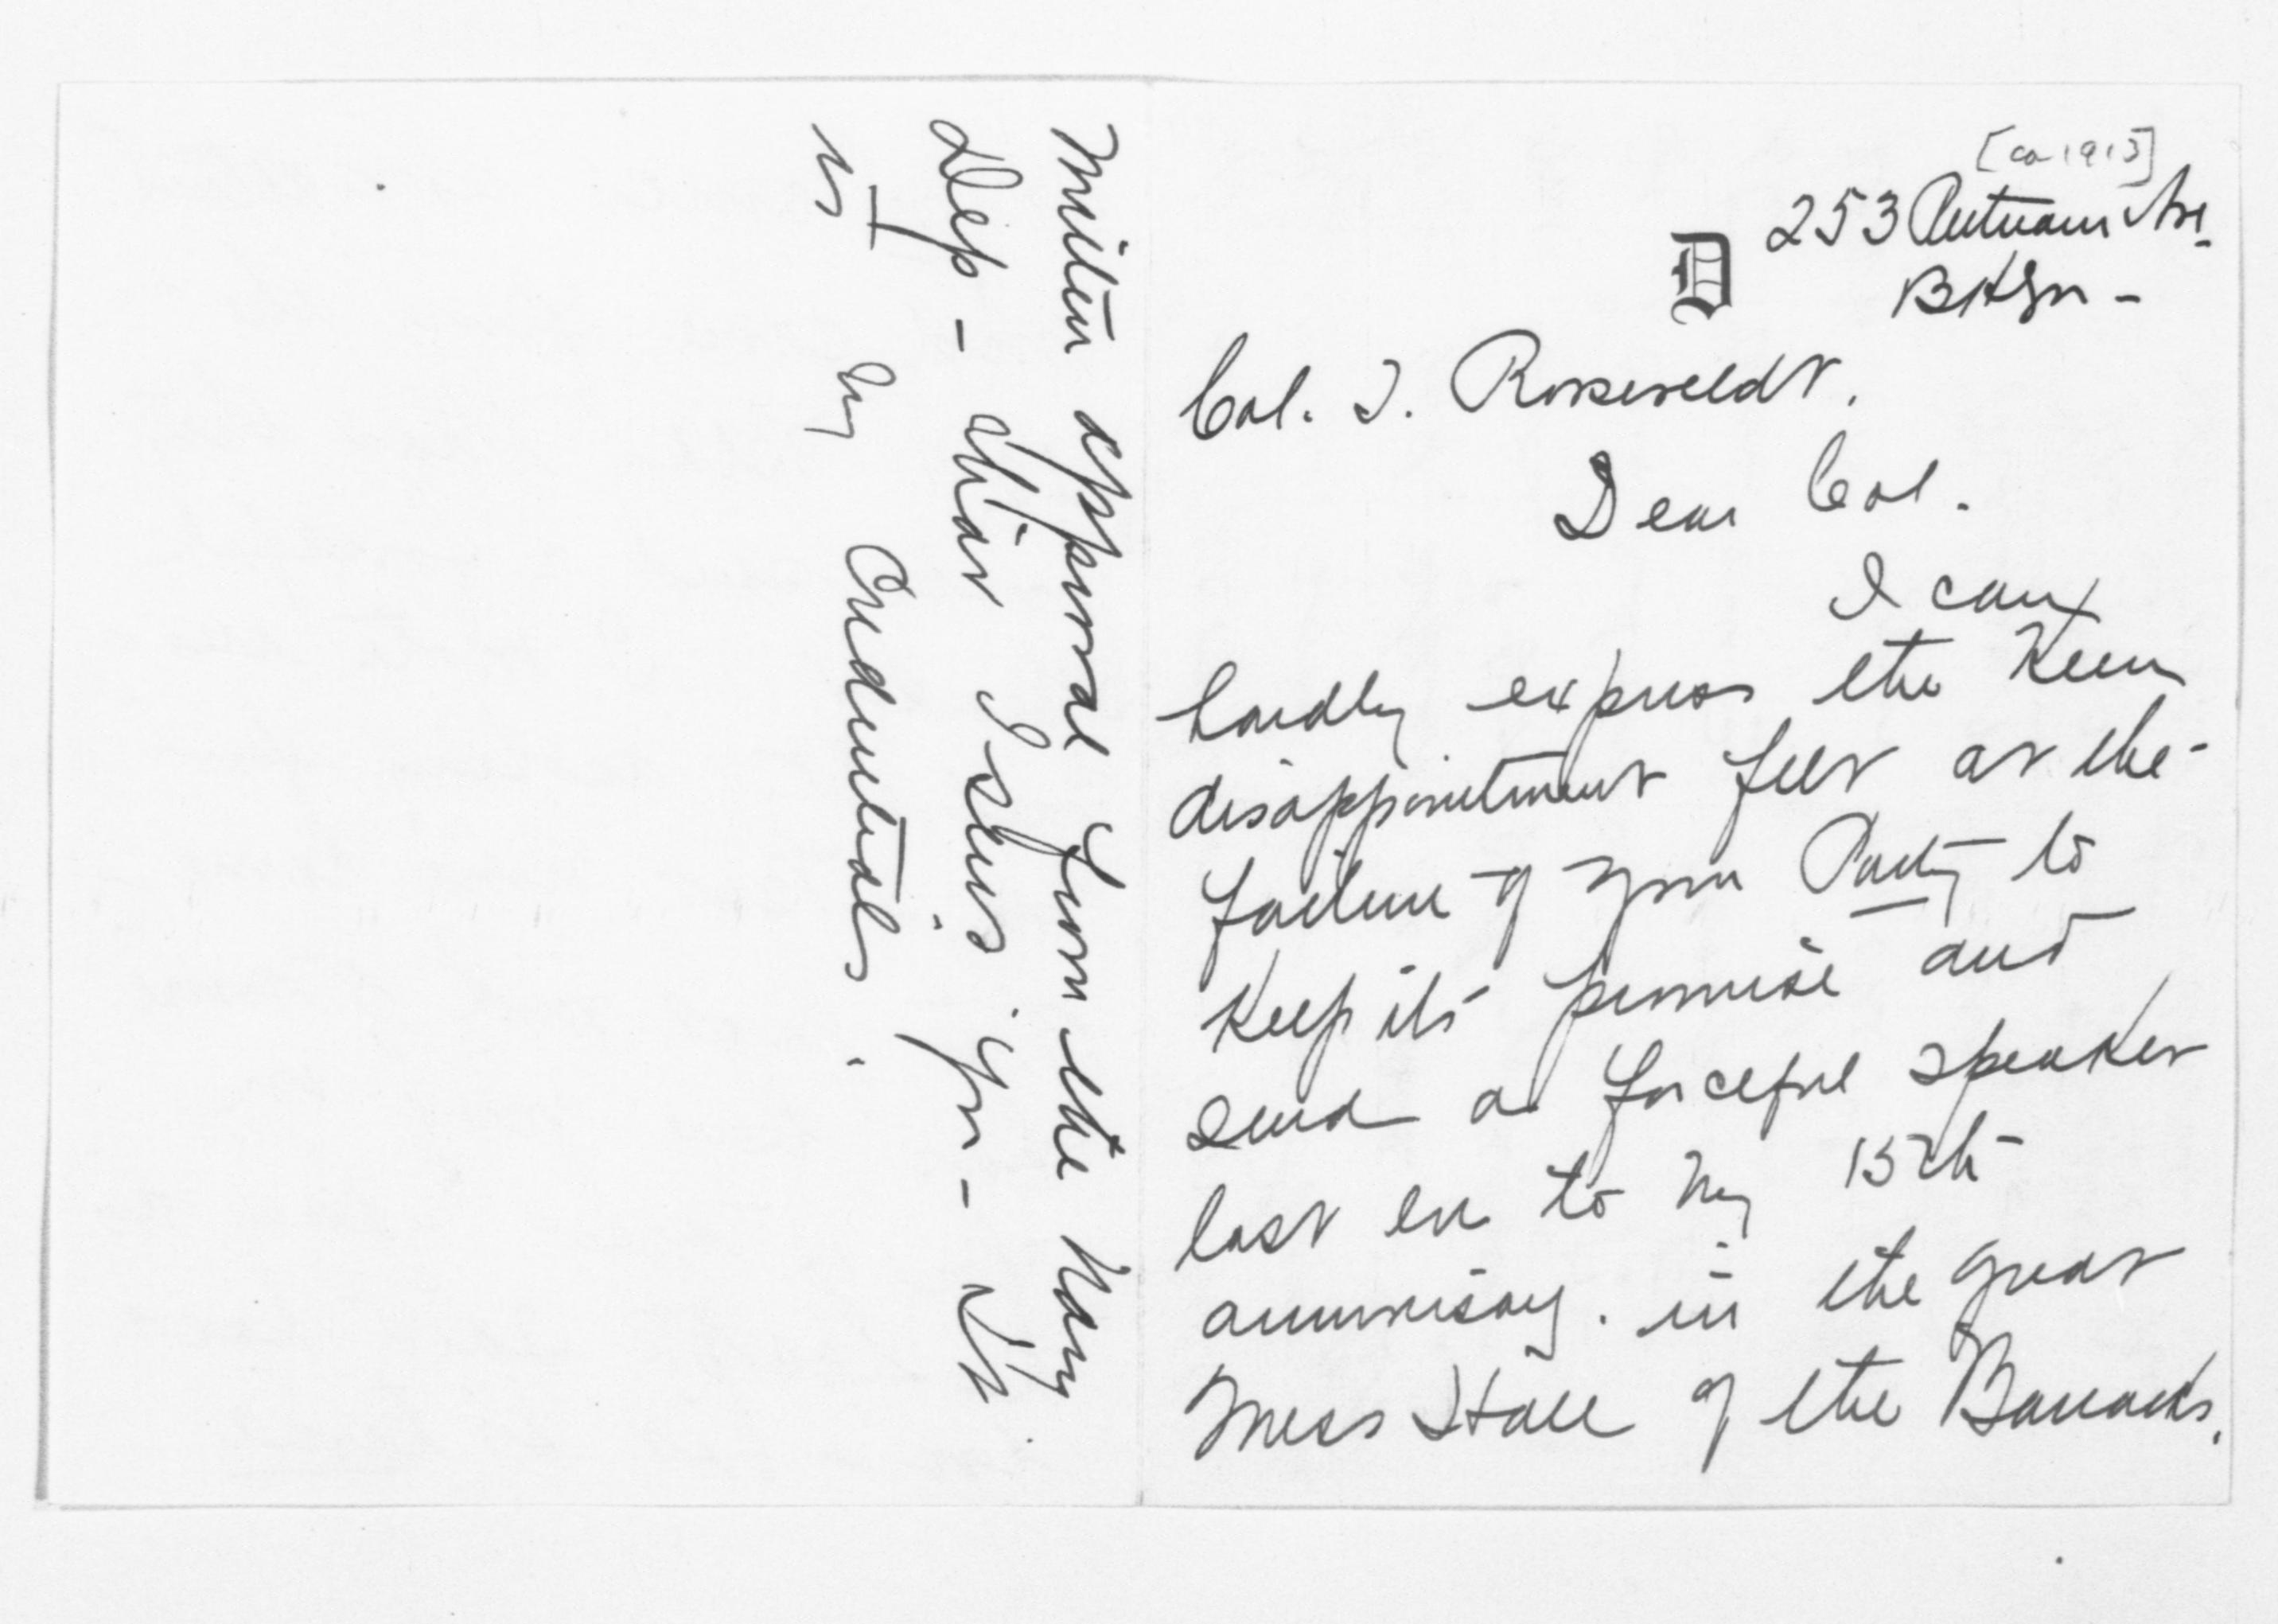 [ca 1913]
253 Putnam Ave.
BKlyn -
D
Col. T. Rooseveldt.
Dear Col.
I can
hardly express the Keen
disappointment felt at the
failure of your Party to
Keep its promise and
send a forceful speaker
last eve to my 15th
anniversay. in the great
Mess Hall of the Barracks.
written approval from the Navy
Dep - that I send you - It
is my Credentials.